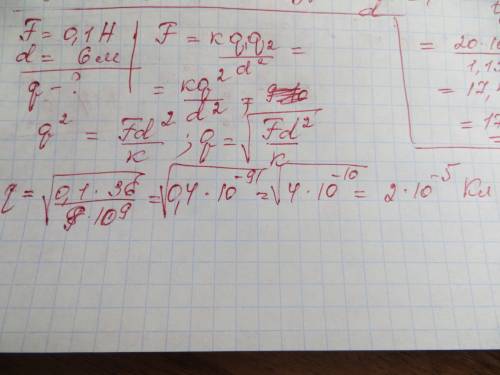 F = 0,1 Н
d = 6 м
q - ?
F = kq₁q₂/d² =
= kq²/d² =
q² = Fd²/k ; q = √(Fd²/k)
q = √(0,1 · 36 / 9 · 10⁹) = √(0,4 · 10⁻⁹) = √(4 · 10⁻¹⁰) = 2 · 10⁻⁵ Кл
d
= 20 · 10
= 17,
= 17